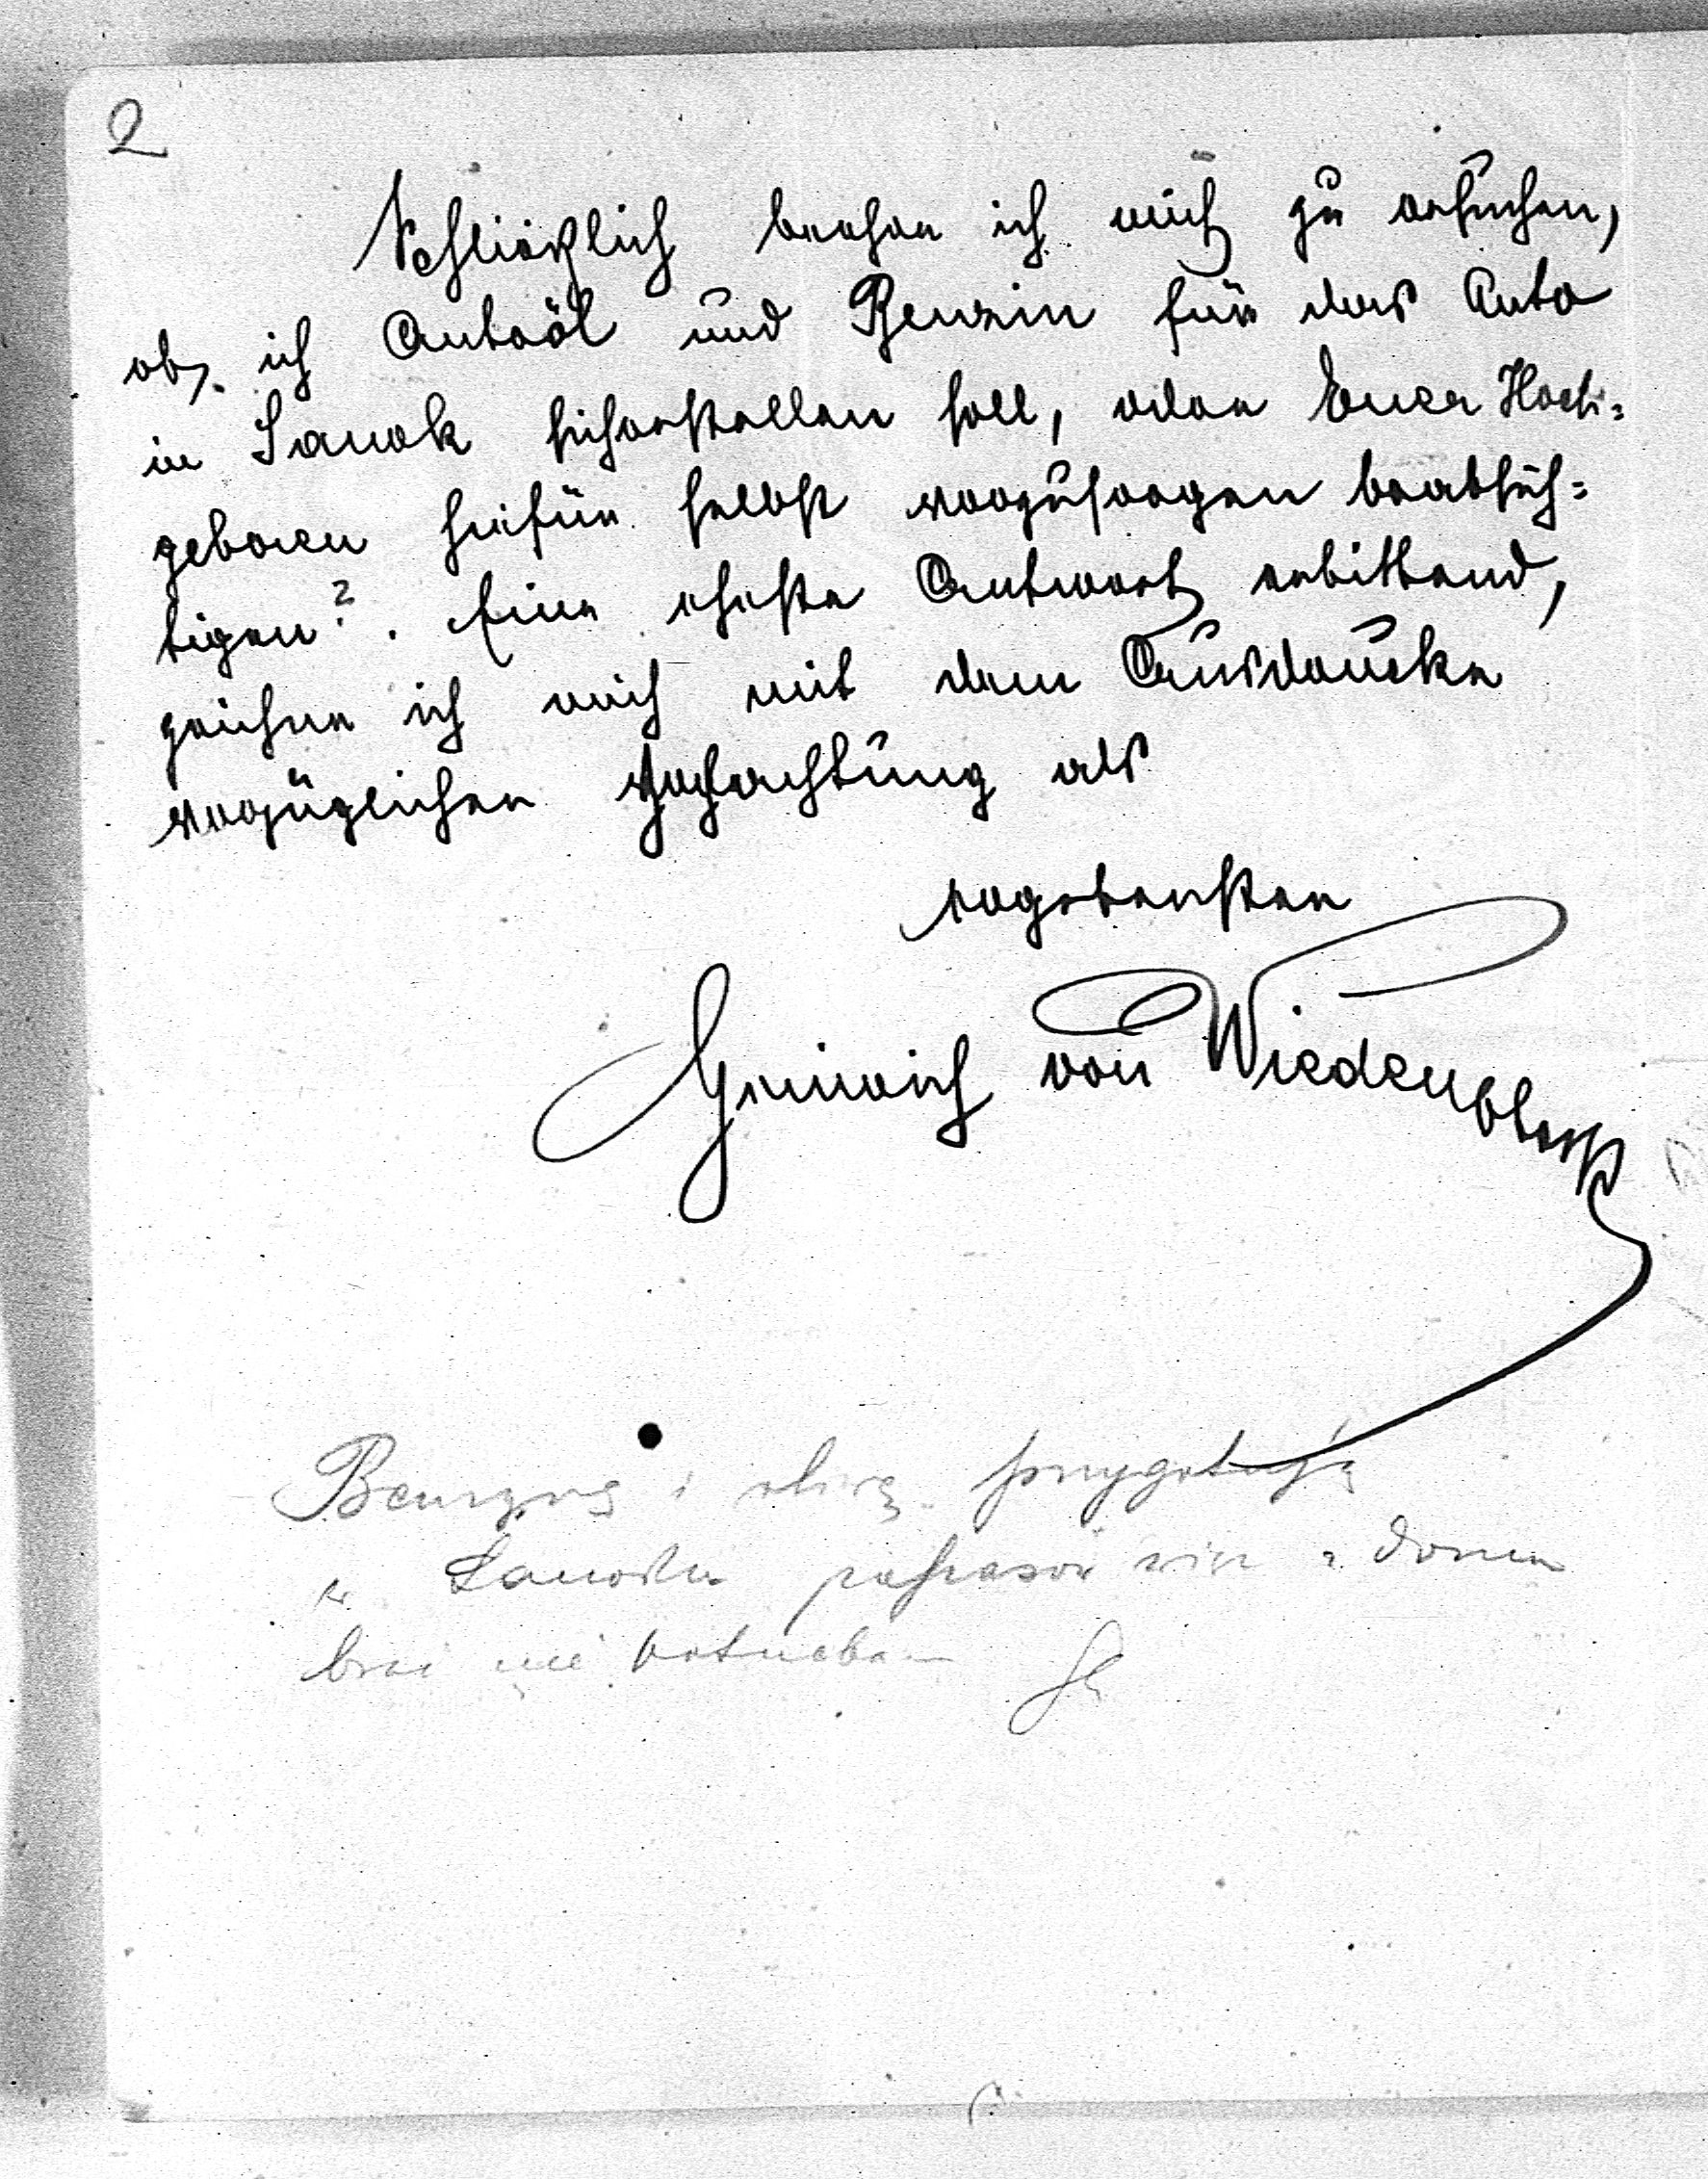 2
Schließlich beehre ich mich zu ersuchen,
ob, ich Autoöl und Benzin für das Auto
in Sanok sicherstellen soll, oder Euer Hoch=
geboren hiefür selbst vorzusorgen beabsich=
tigen?. Eine eheste Antwort erbittend,
zeichne ich mich mit dem Ausdrucke
vorzüglicher Hochachtung als
ergebenster
Heinrich von Wieden
Benzynę i oliwę przygotują
w Sanoku z domu
brać nie potrzeba